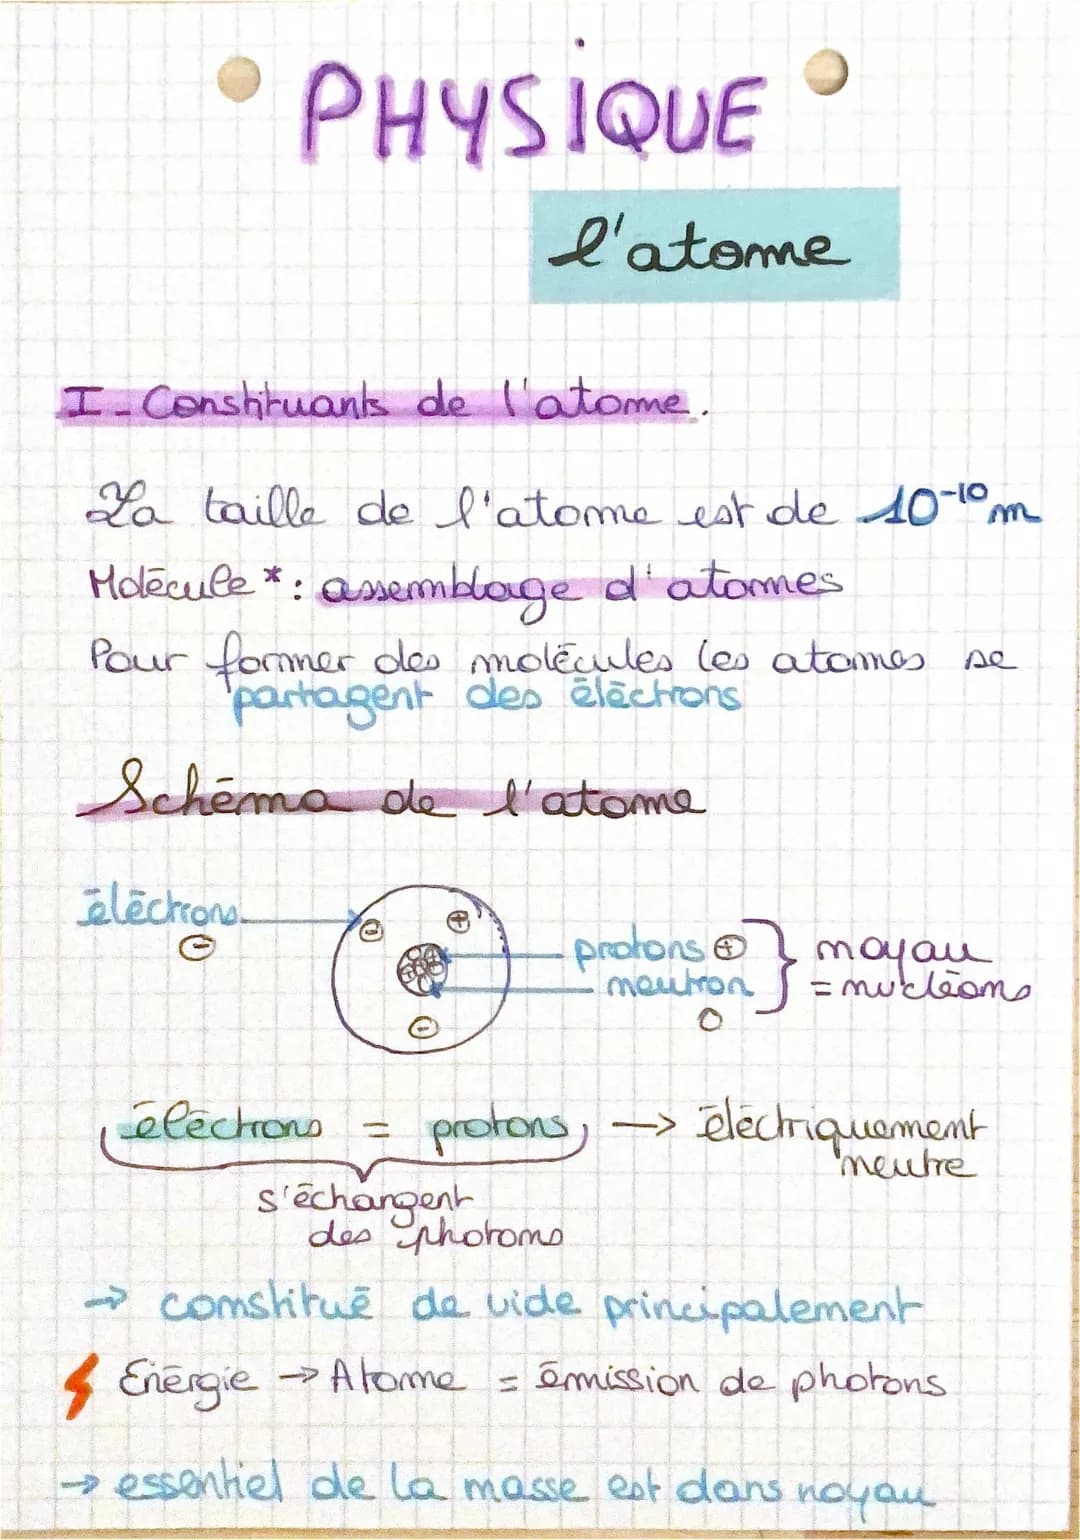 PHYSIQUE
l'atome
I - Constituants de l'atome.
La taille de l'atome est de 10⁻¹⁰ m
Molécule * : assemblage d'atomes
Pour former des molécules les atomes se
partagent des éléctrons
Schéma de l'atome
éléctrons
⊖
protons ⊕
neutron
noyau
= nucléons
éléctrons = protons → éléctriquement
neutre
s'échangent
des photons
→ constitué de vide principalement
Énérgie → Atome = émission de photons
→ essentiel de la masse est dans noyau